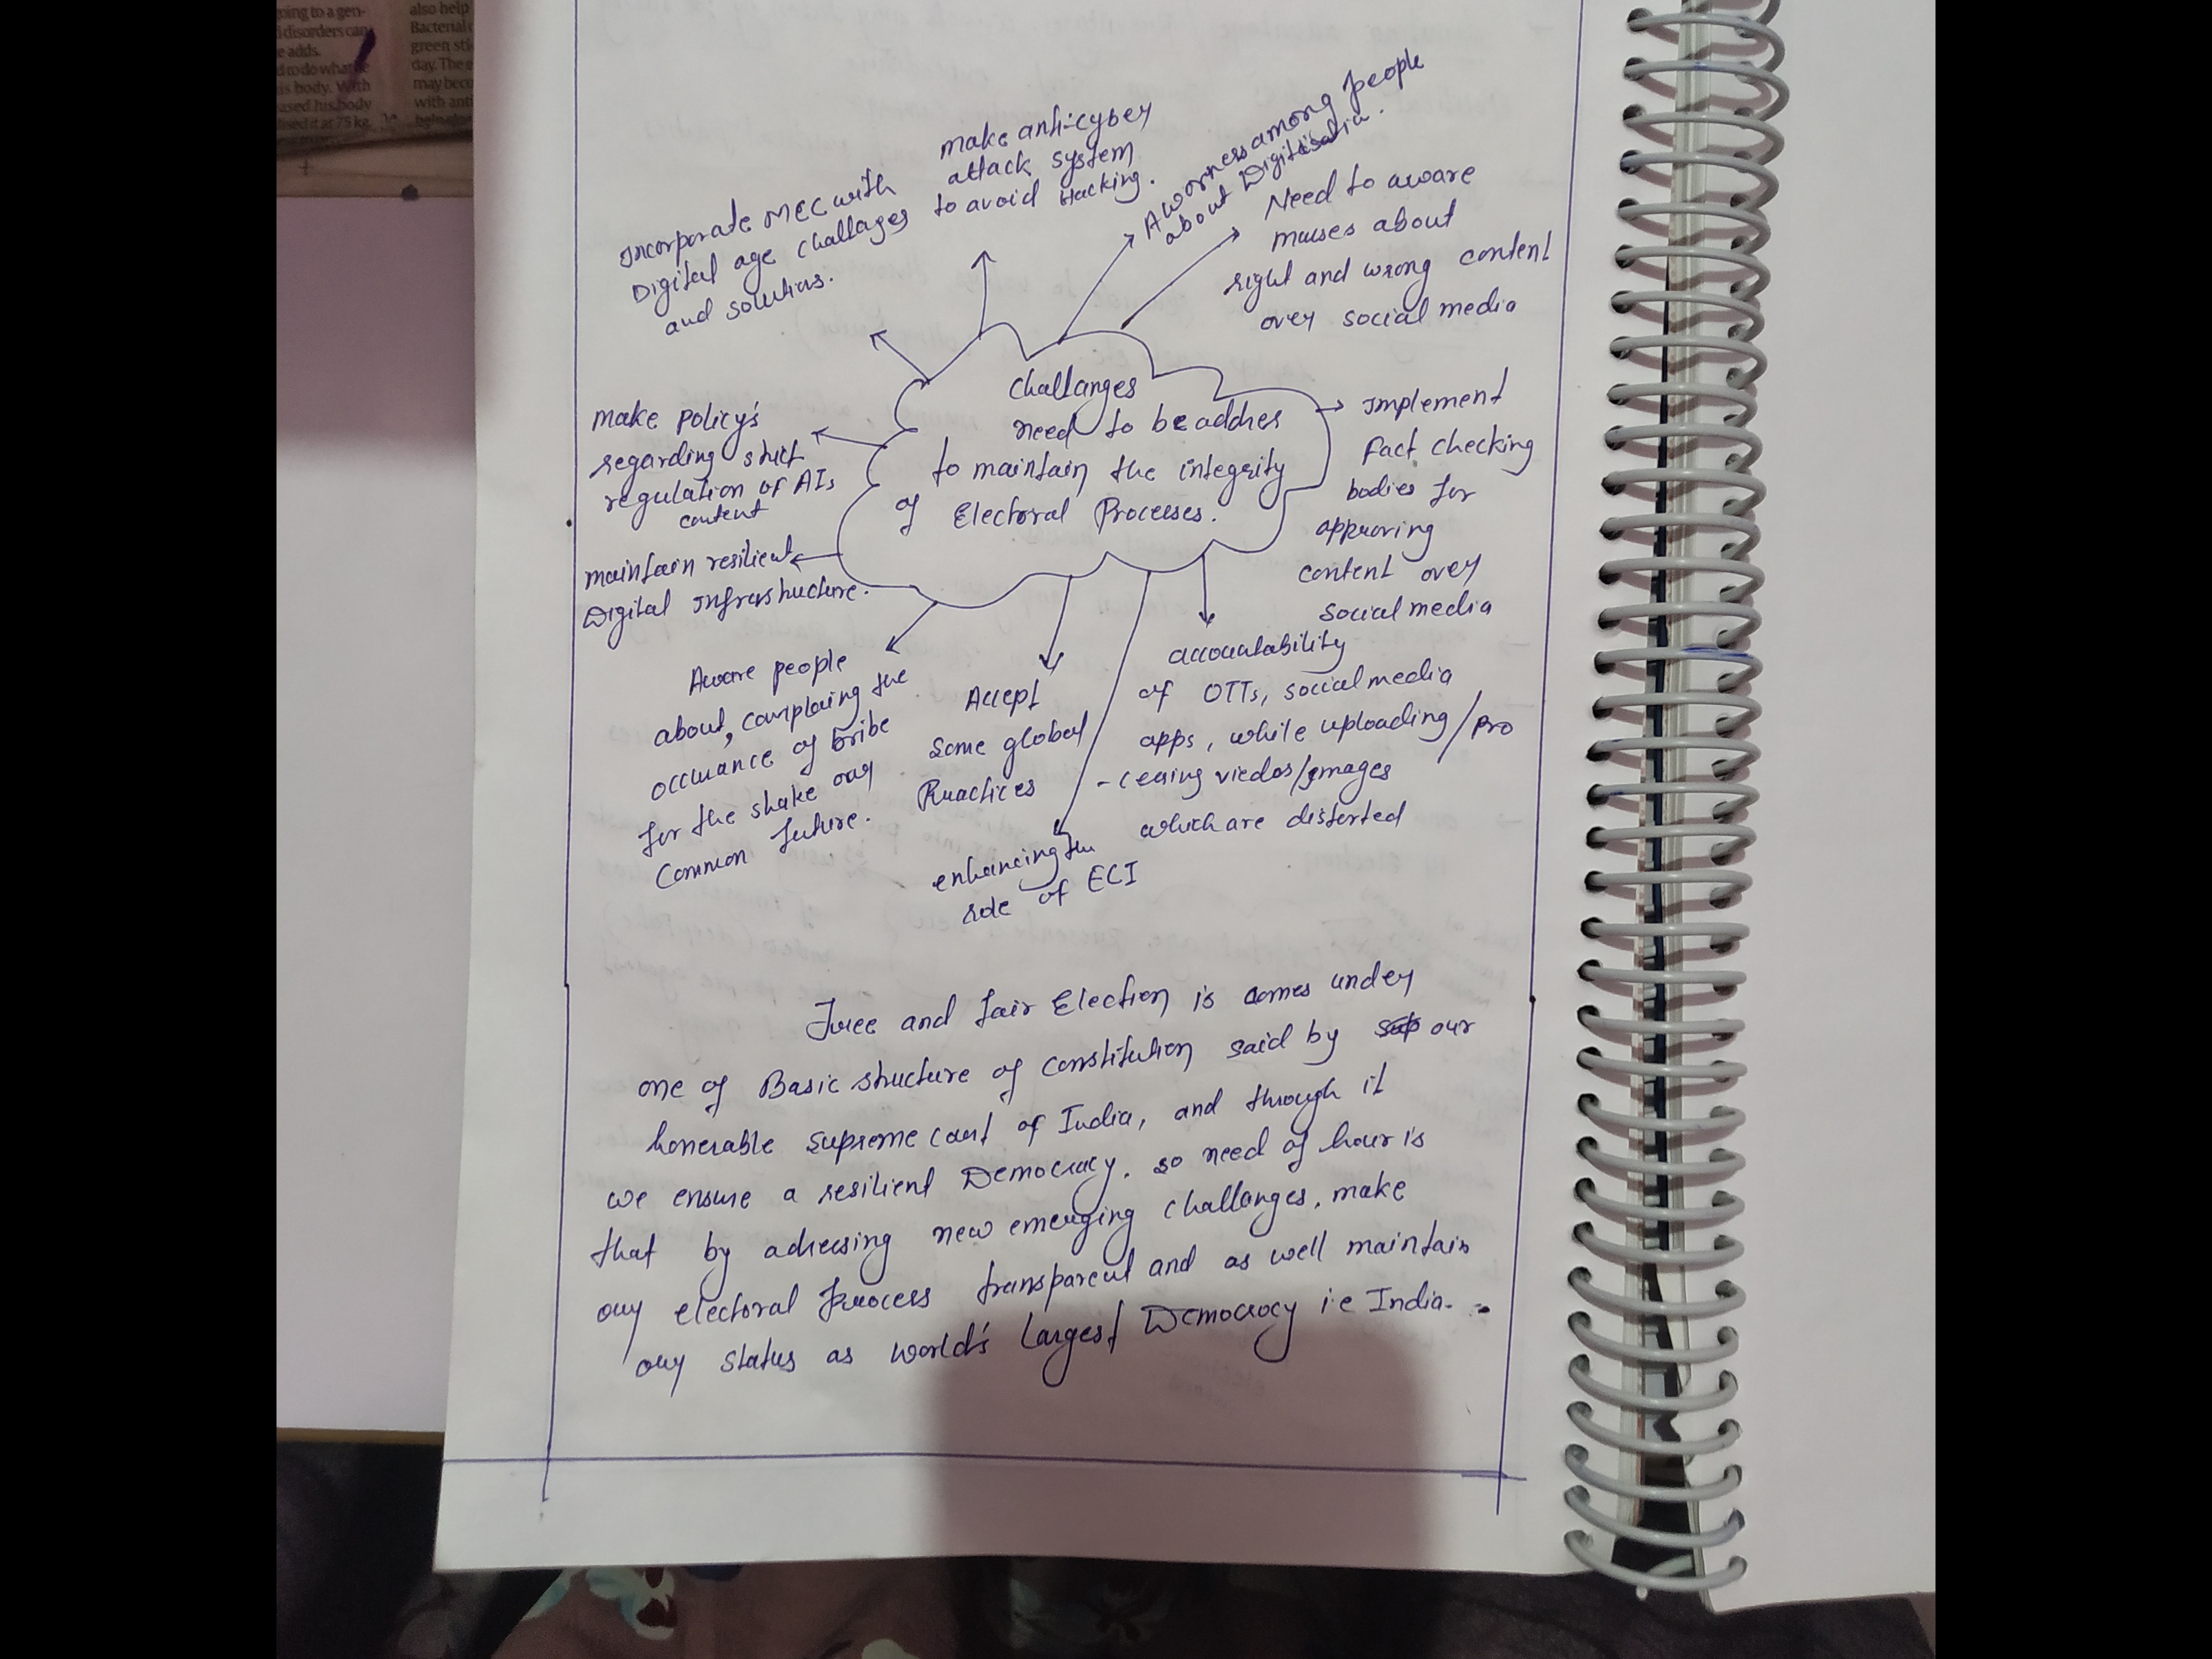 going to a gen-
disorders can
e adds.
d to do what he
is body. With
used his body
ised it at 75 kg.
also help
Bacterial
green sti
day. The e
may beco
with anti
Incorporate MCC with
Digital age challages
and solutions.
make anti-cyber
attack system
to avoid Hacking.
Aworness among people
about Digitisatia.
Need to aware
masses about
right and wrong content
over social media
Challanges
need to be addres
to maintain the integrity
of Electoral Processes.
make policy's
regarding strict
regulation of AIs
content
maintain resilient
Digital Infrastructure.
Implement
Fact checking
bodies for
approving
content over
social media
Aware people
about, complaing the
occurance of bribe
for the shake our
Common future.
Accept
some global
Practices
enhancing the
role of ECI
accountability
of OTTs, social media
apps, while uploading/pro
-cessing viedos/images
which are distorted
Free and fair Election is comes under
one of Basic structure of constitution said by our
honerable supreme court of India, and through it
we ensure a resilient Democracy. so need of hour is
that by adressing new emerging challanges, make
our electoral process transparent and as well maintain
our status as world's largest Democracy i.e India.